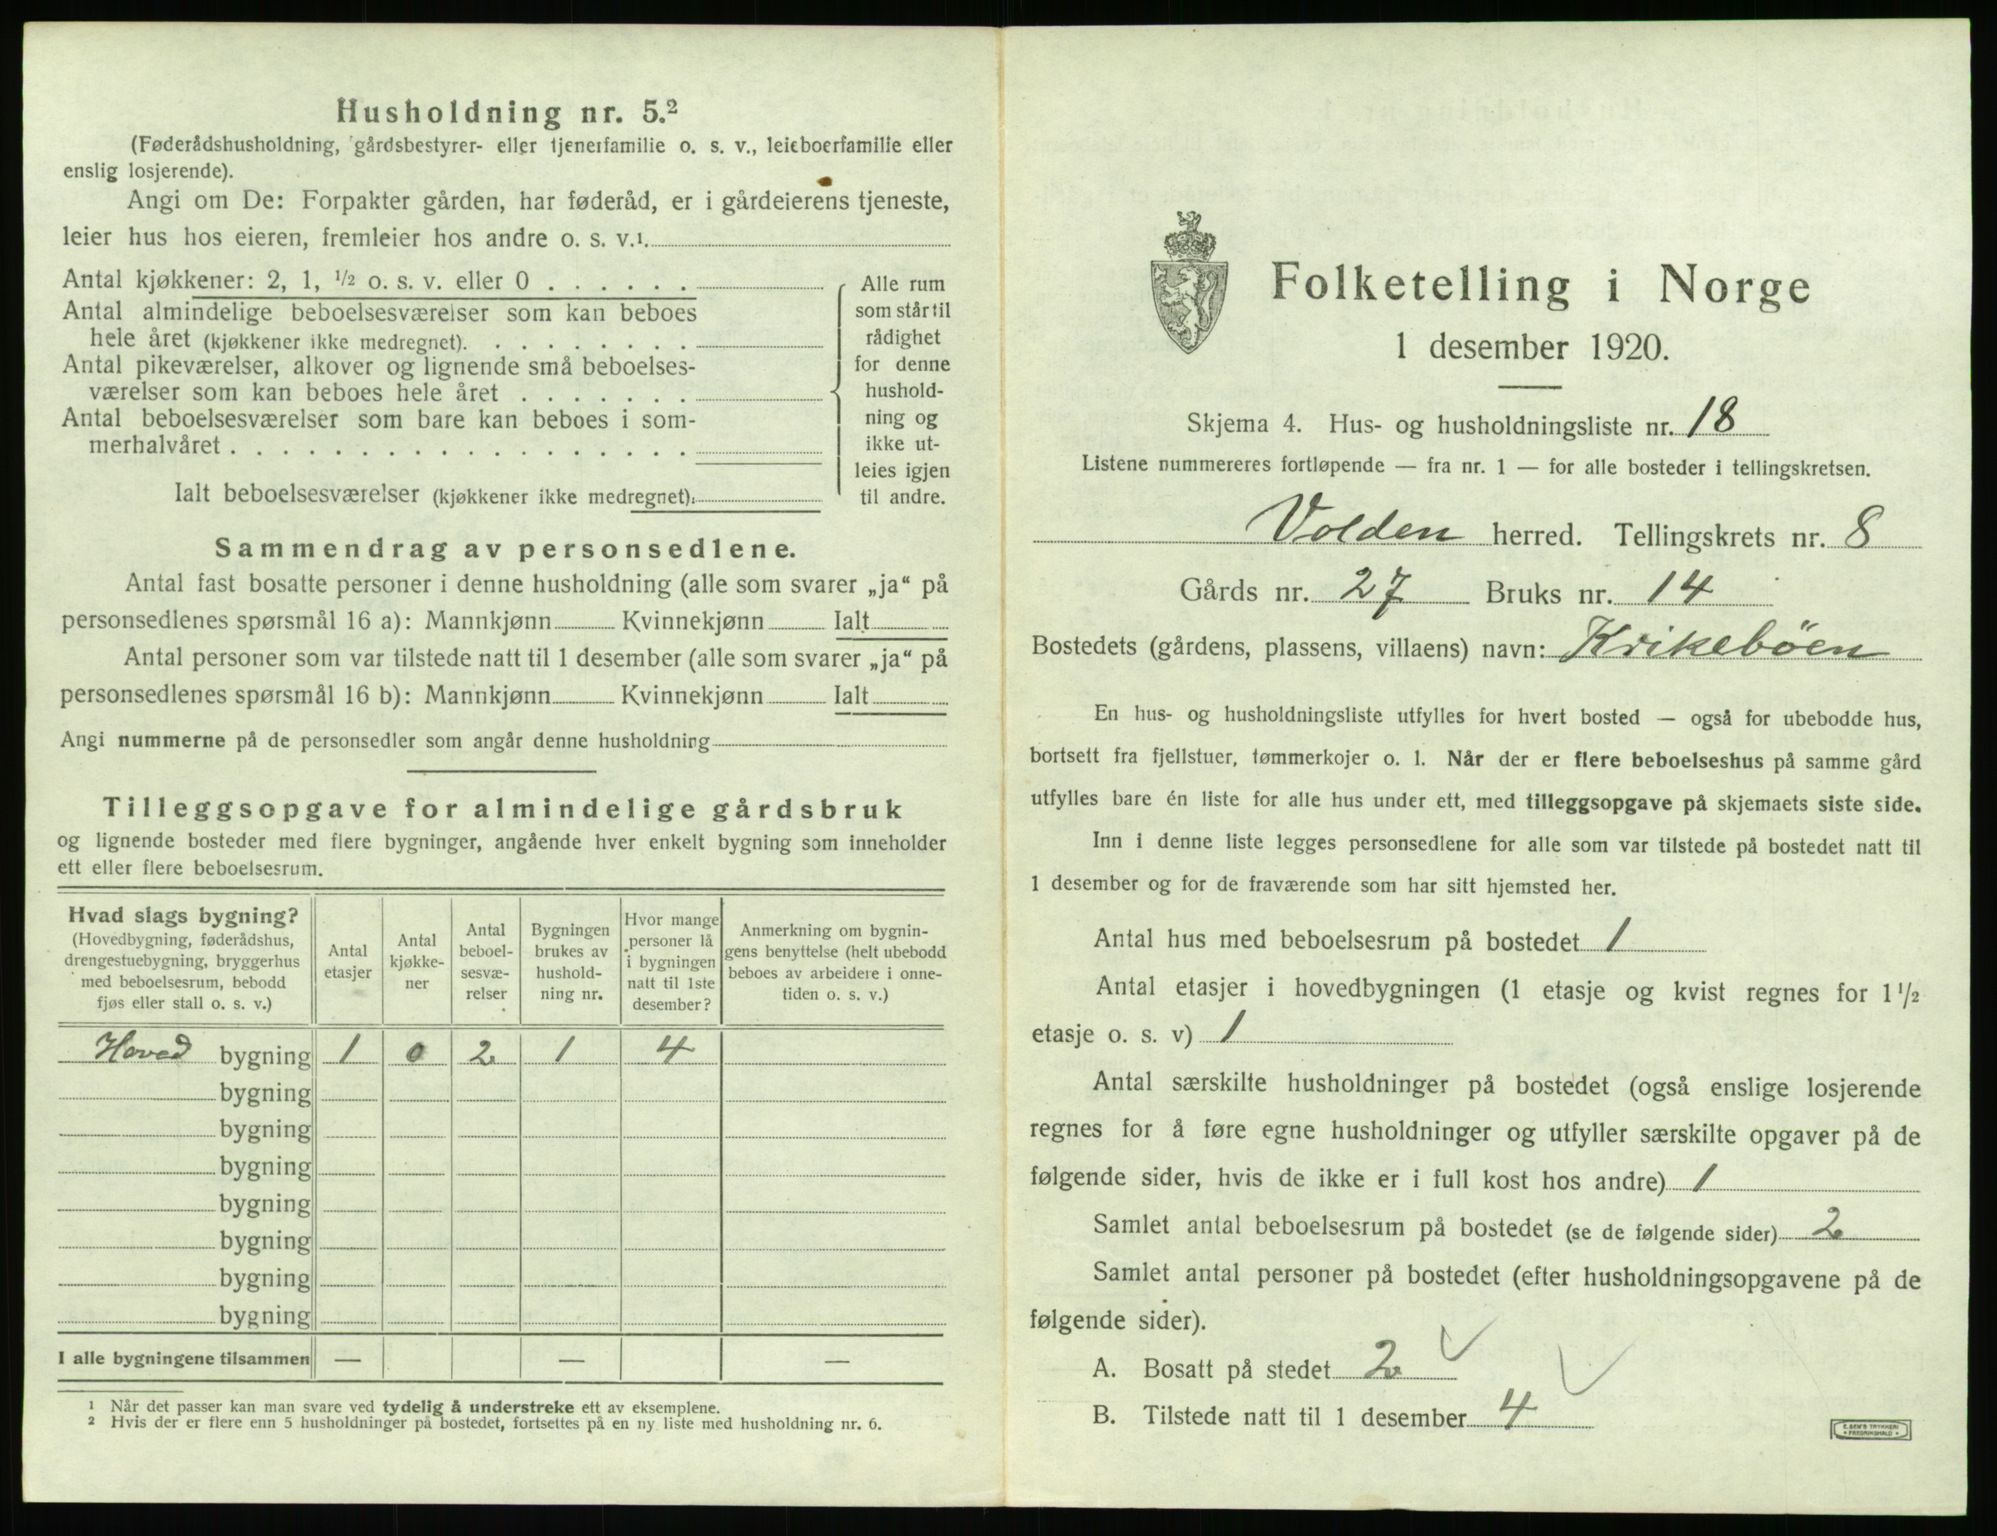 Husholdning nr. 5.²
(Føderådshusholdning, gårdsbestyrer- eller tjenerfamilie o. s. v., leieboerfamilie eller
enslig losjerende).
Angi om De: Forpakter gården, har føderåd, er i gårdeierens tjeneste,
leier hus hos eieren, fremleier hos andre o. s. v.¹
Antal kjøkkener: 2, 1, ½ o. s. v. eller 0
Antal almindelige beboelsesværelser som kan beboes
hele året (kjøkkener ikke medregnet)
Antal pikeværelser, alkover og lignende små beboelses-
værelser som kan beboes hele året
Antal beboelsesværelser som bare kan beboes i som-
merhalvåret
Ialt beboelsesværelser (kjøkkener ikke medregnet):
Alle rum
som står til
rådighet
for denne
hushold-
ning og
ikke ut-
leies igjen
til andre.
Sammendrag av personsedlene.
Antal fast bosatte personer i denne husholdning (alle som svarer „ja“ på
personsedlenes spørsmål 16 a): Mannkjønn Kvinnekjønn Ialt
Antal personer som var tilstede natt til 1 desember (alle som svarer „ja“ på
personsedlenes spørsmål 16 b): Mannkjønn Kvinnekjønn Ialt
Angi nummerne på de personsedler som angår denne husholdning
Tilleggsopgave for almindelige gårdsbruk
og lignende bosteder med flere bygninger, angående hver enkelt bygning som inneholder
ett eller flere beboelsesrum.
Hvad slags bygning?
(Hovedbygning, føderådshus,
drengestuebygning, bryggerhus
med beboelsesrum, bebodd
fjøs eller stall o. s. v.)
Antal
etasjer
Antal
kjøkke-
ner
Antal
beboel-
sesvæ-
relser
Bygningen
brukes av
hushold-
ning nr.
Hvor mange
personer lå
i bygningen
natt til 1ste
desember?
Anmerkning om bygnin-
gens benyttelse (helt ubebodd
beboes av arbeidere i onne-
tiden o. s. v.)
Hoved bygning 1 0 2 1 4
bygning
bygning
bygning
bygning
bygning
bygning
bygning
I alle bygningene tilsammen — — —
¹ Når det passer kan man svare ved tydelig å understreke ett av eksemplene.
² Hvis der er flere enn 5 husholdninger på bostedet, fortsettes på en ny liste med husholdning nr. 6.
Folketelling i Norge
1 desember 1920.
Skjema 4. Hus- og husholdningsliste nr. 18
Listene nummereres fortløpende — fra nr. 1 — for alle bosteder i tellingskretsen.
Volden herred. Tellingskrets nr. 8
Gårds nr. 27 Bruks nr. 14
Bostedets (gårdens, plassens, villaens) navn: Krikebøen
En hus- og husholdningsliste utfylles for hvert bosted — også for ubebodde hus,
bortsett fra fjellstuer, tømmerkojer o. l. Når der er flere beboelseshus på samme gård
utfylles bare én liste for alle hus under ett, med tilleggsopgave på skjemaets siste side.
Inn i denne liste legges personsedlene for alle som var tilstede på bostedet natt til
1 desember og for de fraværende som har sitt hjemsted her.
Antal hus med beboelsesrum på bostedet 1
Antal etasjer i hovedbygningen (1 etasje og kvist regnes for 1½
etasje o. s. v) 1
Antal særskilte husholdninger på bostedet (også enslige losjerende
regnes for å føre egne husholdninger og utfyller særskilte opgaver på de
følgende sider, hvis de ikke er i full kost hos andre) 1
Samlet antal beboelsesrum på bostedet (se de følgende sider) 2
Samlet antal personer på bostedet (efter husholdningsopgavene på de
følgende sider).
A. Bosatt på stedet 2
B. Tilstede natt til 1 desember 4